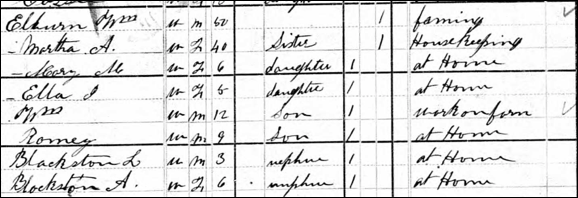 Elburn Wm w m 50 1 faming
- Mertha A. w F 40 Sister 1 Housekeeping
- Mary M w F 6 daughter 1 at Home
- Ella J w F 8 daughter 1 at Home
Wm w m 12 Son 1 work on farm
Romey w m 9 Son 1 at Home
Blackston L w m 3 nephue 1 at Home
Blockston A. w F 6 1 at Home